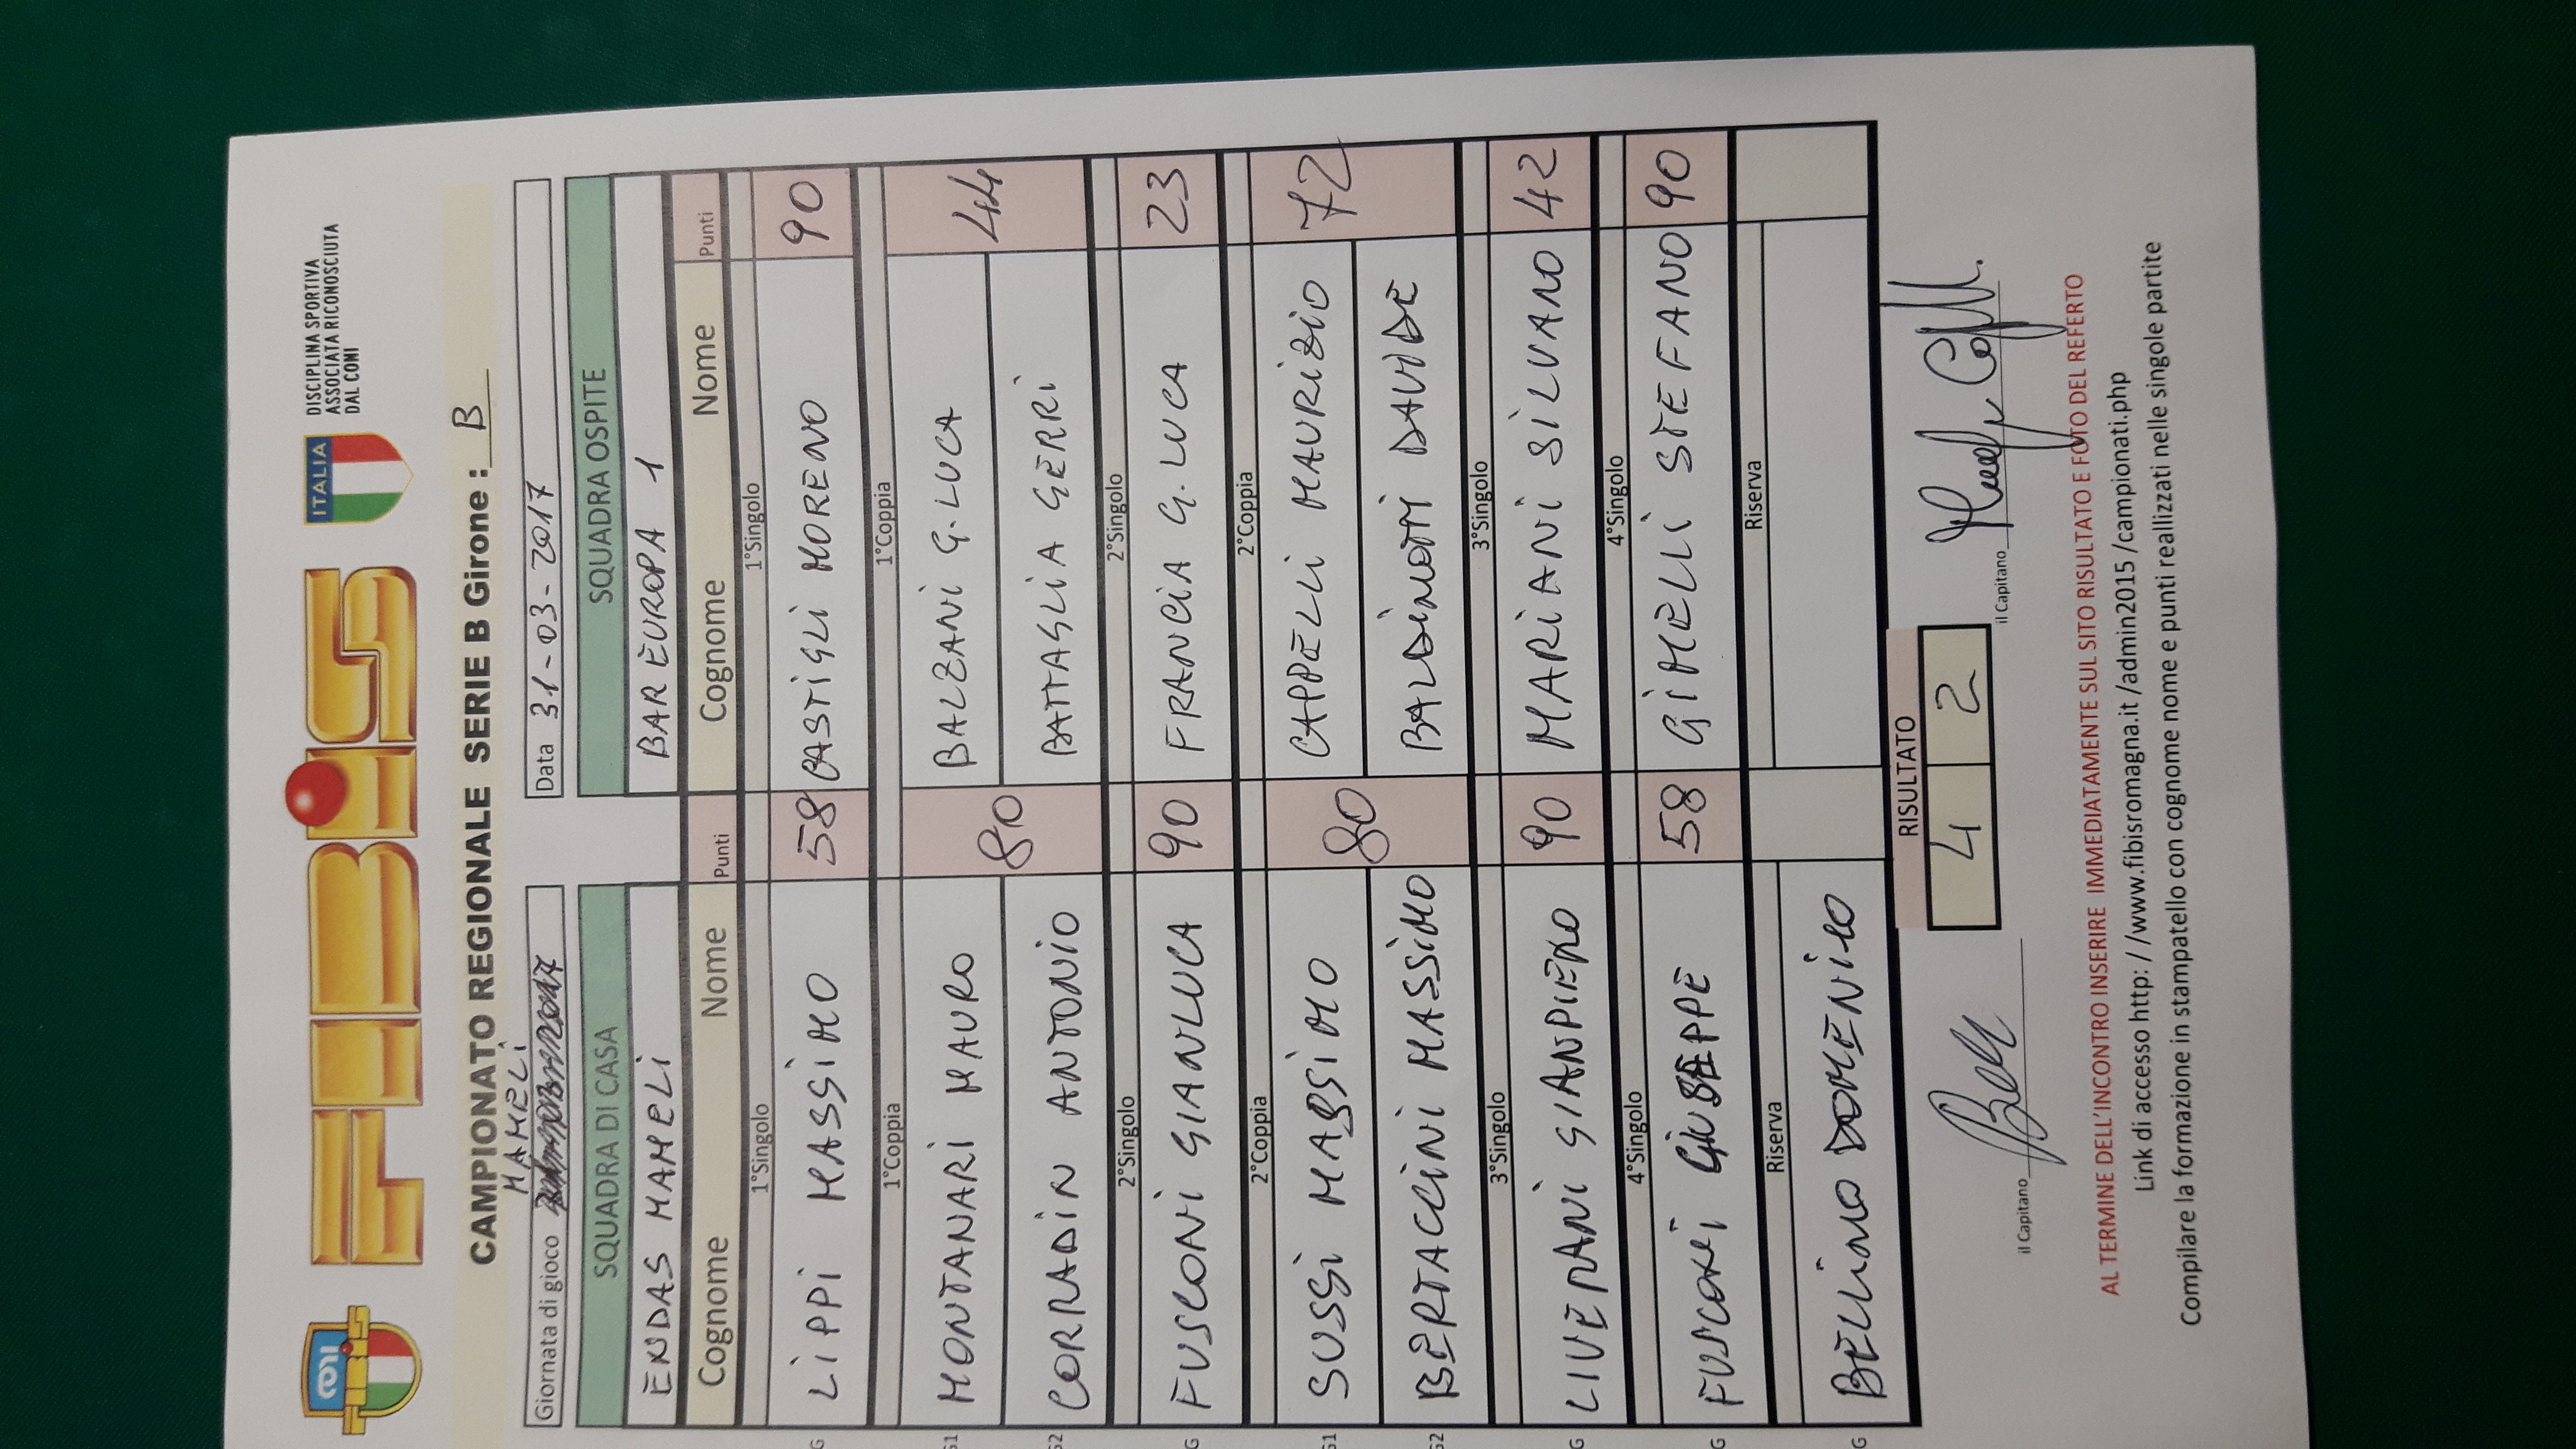 CONI
FIBiS
ITALIA
DISCIPLINA SPORTIVA
ASSOCIATA RICONOSCIUTA
DAL CONI
CAMPIONATO REGIONALE SERIE B Girone : B
MAMELI
Giornata di gioco
Data 31-03-2017
SQUADRA DI CASA SQUADRA OSPITE
ENDAS MAMELI BAR EUROPA 1
Cognome Nome Punti Cognome Nome Punti
1°Singolo 1°Singolo
G LIPPI MASSIMO 58 CASTIGLI MORENO 90
1°Coppia 1°Coppia
G1 MONTANARI MAURO 80 BALZANI G.LUCA 44
G2 CORRADIN ANTONIO BATTAGLIA GERRI
2°Singolo 2°Singolo
G FUSCONI GIANLUCA 90 FRANCIA G.LUCA 23
2°Coppia 2°Coppia
G1 SUSSI MASSIMO 80 CAPPELLI MAURIZIO 72
G2 BERTACCINI MASSIMO BALDINOTTI DAVIDE
3°Singolo 3°Singolo
G LIVERANI GIANPIERO 90 MARIANI SILVANO 42
4°Singolo 4°Singolo
G FUSCONI GIUSEPPE 58 GIMELLI STEFANO 90
Riserva Riserva
G BELLINO DOMENICO
RISULTATO
4 2
il Capitano il Capitano
AL TERMINE DELL'INCONTRO INSERIRE IMMEDIATAMENTE SUL SITO RISULTATO E FOTO DEL REFERTO
Link di accesso http: / /www.fibisromagna.it /admin2015 /campionati.php
Compilare la formazione in stampatello con cognome nome e punti reallizzati nelle singole partite